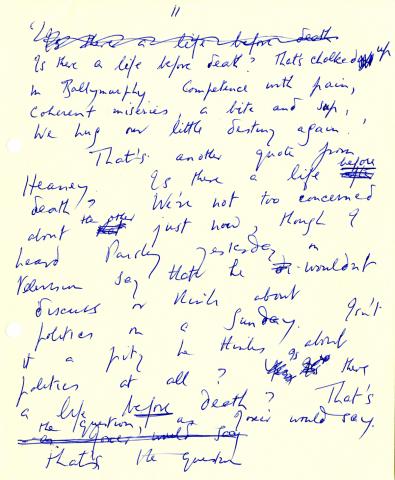 11
'Is there a life before death
Is there a life before death? That's chalked up
in Ballymurphy Competence with pain,
coherent miseries, a bite and sup,
We hug our little destiny again.'
That's another quote from
Heaney Is there a life before
death? We're not too concerned
about the other just now, though I
heard Paisley yesterday on
television say that he wouldn't
discuss or think about
politics on a Sunday. Isn't
it a pity he thinks about
politics at all? Is there
a life before death? That's
the question, as Joxer would say.
as Joxer would say
that's the question